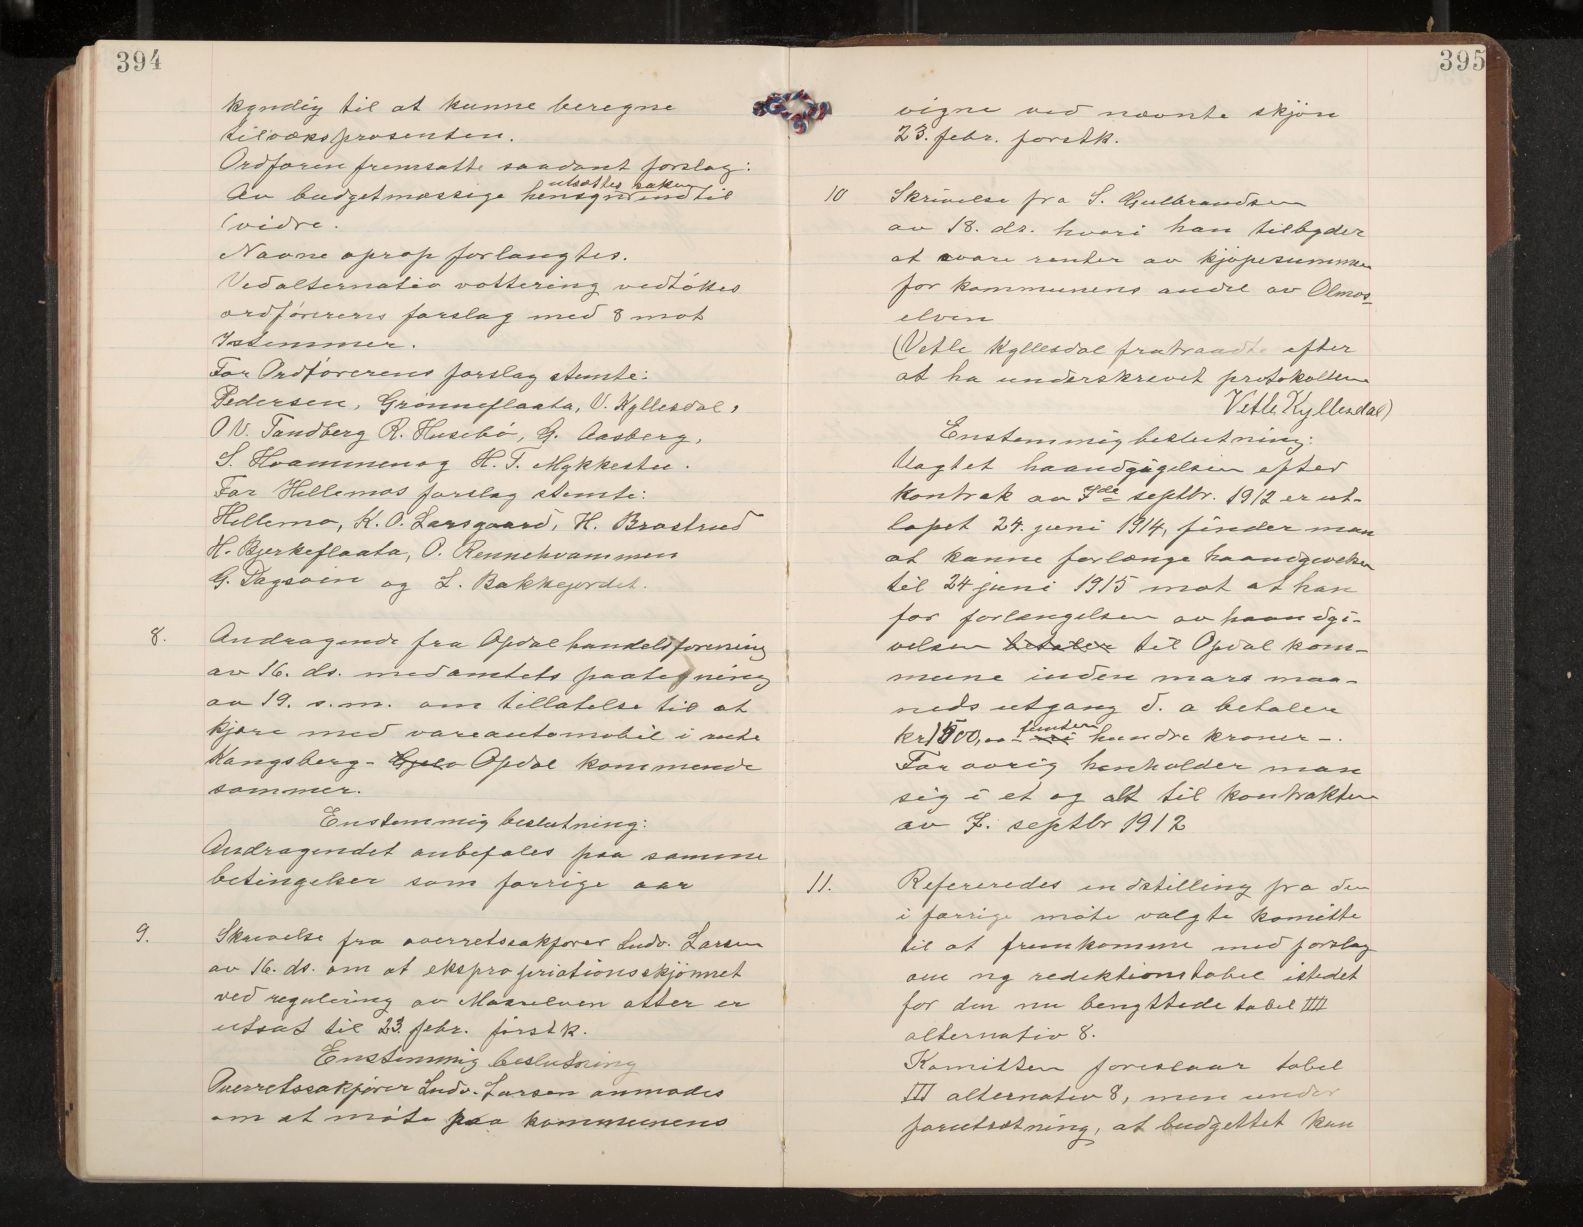 394
kyndig til at kunne beregne
tilvæksprosenten.
Ordføren fremsatte saadant forslag:
utsættes saken
Av budgetmæssige hensyn indtil
vidre.
Navne oprop forlangtes.
Ved alternativ vottering vedtokes
ordførerens forslag med 8 mot
7 stemmer.
For Ordførerens forslag stemte:
Pedersen, Grønneflaata, V. Kyllesdal,
O V. Tandberg R. Husebø, G. Aasberg,
S. Hvammen og H. T. Mykkestu.
For Hellemos forslag stemte:
Hellemo, K. O. Larsgaard, H. Brøstrud
H. Bjerkeflaata, O. Rennehvammen
G. Dagsvin og L. Bakkejordet.
8. Andragende fra Opdal handelsforening
av 16. ds. med amtets paategning
av 19. s. m. om tillatelse til at
kjøre med vareautomobil i rute
Kongsberg - Opdal kommende
sommer.
Enstemmig beslutning:
Andragendet anbefales paa samme
betingelser som forrige aar
9. Skrivelse fra overretssakfører Ludv. Larsen
av 16. ds. om at ekspropriationsskjønnet
ved regulering av Masselven atter er
utsat til 23. febr. førstk.
Enstemmig beslutning
Overretssakfører Ludv. Larsen anmodes
om at møte paa kommunens
395
vigne ved nævnte skjøn
23. febr. førstk.
10 Skrivelse fra S. Gulbrandsen
av 18. ds. hvori han tilbyder
at svare renter av kjøpesummen
for kommunens andel av Olmos-
elven
(Vetle Kyllesdal fratraadte efter
at ha underskrevet protokollen
Vetle Kyllesdal)
Enstemmig beslutning:
Uagtet haandgivelsen efter
kontrak av 7de septbr. 1912 er ut-
løpet 24. juni 1914, finder man
at kunne forlænge haandgivelsen
til 24 juni 1915 mot at han
for forlængelsen av haandgi-
velsen betaler til Opdal kom-
mune inden mars maa-
neds utgang d. a betaler
femten
kr 1500,00 - hundre kroner -.
For øvrig henholder man
sig i et og alt til kontrakten
av 7. septbr 1912
11. Refereredes indstilling fra den
i forrige møte valgte komitte
til at fremkomme med forslag
om ny rediktionstabel istedet
for den nu benyttede tabel III
alternativ 8.
Komitten foreslaar tabel
III alternativ 8, men under
forutsætning, at budgettet kan